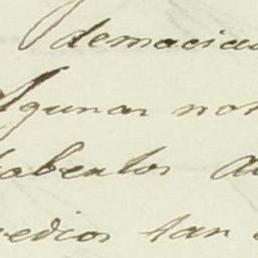 demacia
Algunas no
saberlos a
medios tan